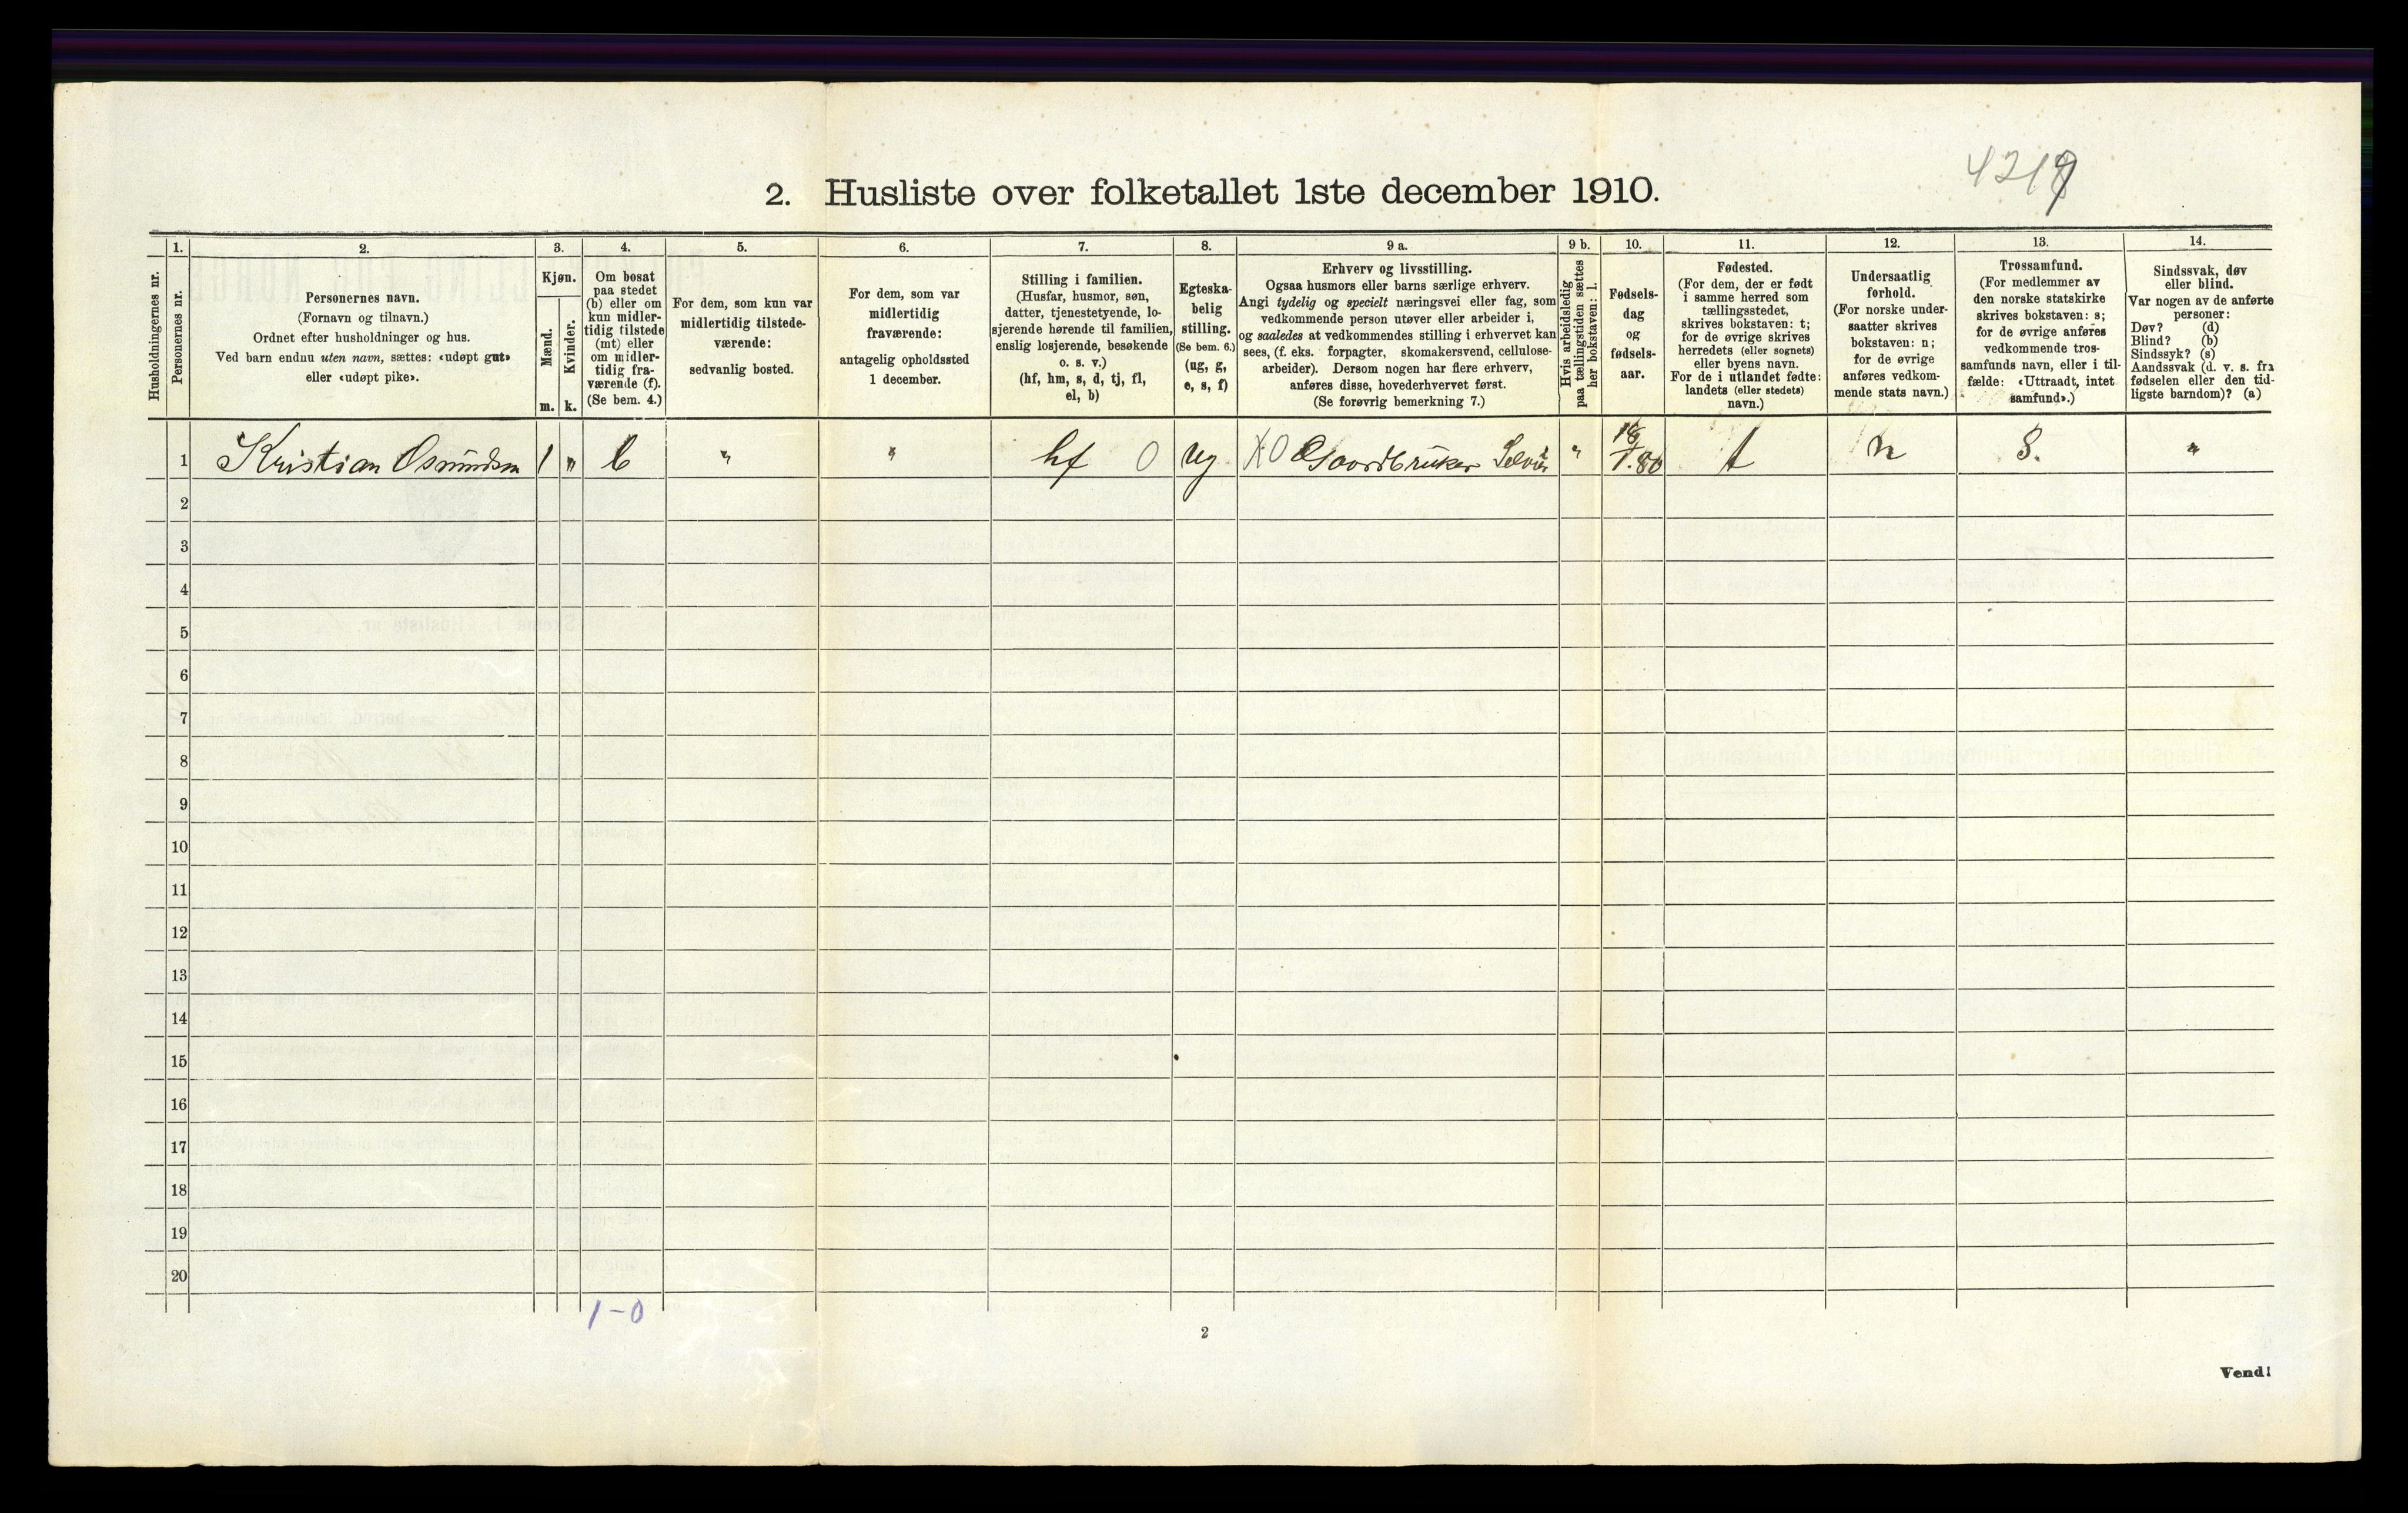 2. Husliste over folketallet 1ste december 1910.
Husholdningernes nr.
1.
Personernes nr.
2.
Personernes navn.
(Fornavn og tilnavn.)
Ordnet efter husholdninger og hus.
Ved barn endnu uten navn, sættes: «udøpt gut»
eller «udøpt pike».
3.
Kjøn.
Mænd.
Kvinder.
m. k.
4.
Om bosat
paa stedet
(b) eller om
kun midler-
tidig tilstede
(mt) eller
om midler-
tidig fra-
værende (f).
(Se bem. 4.)
5.
For dem, som kun var
midlertidig tilstede-
værende:
sedvanlig bosted.
6.
For dem, som var
midlertidig
fraværende:
antagelig opholdssted
1 december.
7.
Stilling i familien.
(Husfar, husmor, søn,
datter, tjenestetyende, lo-
sjerende hørende til familien,
enslig losjerende, besøkende
o. s. v.)
(hf, hm, s, d, tj, fl,
el, b)
8.
Egteska-
belig
stilling.
(Se bem. 6.)
(ug, g,
e, s, f)
9 a.
Erhverv og livsstilling.
Ogsaa husmors eller barns særlige erhverv.
Angi tydelig og specielt næringsvei eller fag, som
vedkommende person utøver eller arbeider i,
og saaledes at vedkommendes stilling i erhvervet kan
sees, (f. eks. forpagter, skomakersvend, cellulose-
arbeider). Dersom nogen har flere erhverv,
anføres disse, hovederhvervet først.
(Se forøvrig bemerkning 7.)
9 b.
Hvis arbeidsledig
paa tællingstiden sættes
her bokstaven: l.
10.
Fødsels-
dag
og
fødsels-
aar.
11.
Fødested.
(For dem, der er født
i samme herred som
tællingsstedet,
skrives bokstaven: t;
for de øvrige skrives
herredets (eller sognets)
eller byens navn.
For de i utlandet fødte:
landets (eller stedets)
navn.)
12.
Undersaatlig
forhold.
(For norske under-
saatter skrives
bokstaven: n;
for de øvrige
anføres vedkom-
mende stats navn.)
13.
Trossamfund.
(For medlemmer av
den norske statskirke
skrives bokstaven: s;
for de øvrige anføres
vedkommende tros-
samfunds navn, eller i til-
fælde: «Uttraadt, intet
samfund».)
14.
Sindssvak, døv
eller blind.
Var nogen av de anførte
personer:
Døv? (d)
Blind? (b)
Sindssyk? (s)
Aandssvak (d. v. s. fra
fødselen eller den tid-
ligste barndom)? (a)
1 Kristian Osmundsen 1 " b " " hf 0 ug X0 Gaardbruker " 18/1.80 t n S. "
2
3
4
5
6
7
8
9
10
11
12
13
14
15
16
17
18
19
20
1-0
2
Vend!